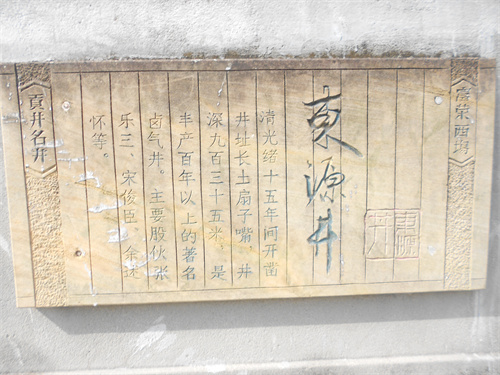 富荣西场
東源井
東源井
清光绪十五年间开凿
井址长土扇子嘴，井
深九百三十五米，是
丰产百年以上的著名
卤气井。主要股伙张
乐三、宋俊臣、余述
怀等。
貢井名井